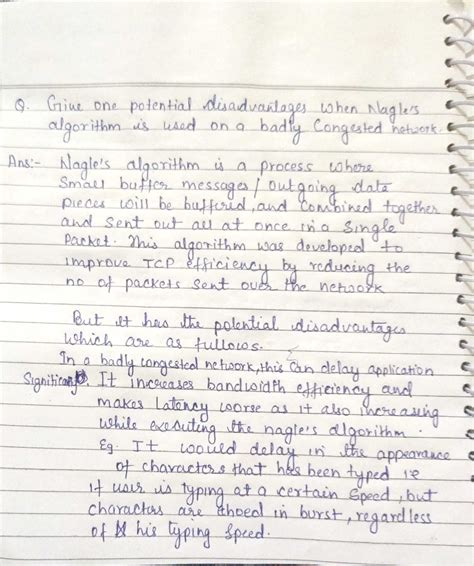 Q. Give one potential disadvantages when Nagle's
algorithm is used on a badly Congested network.
Ans:- Nagle's algorithm is a process where
Small buffer messages/ outgoing date
pieces will be buffered, and Combined together
and sent out all at once in a Single
Packet. This algorithm was developed to
improve TCP efficiency by reducing the
no of packets sent over the network
But it has the potential disadvantages
which are as follows.
In a badly congested network, this can delay application
Significantly. It increases bandwidth efficiency and
makes latency worse as it also increasing
while executing the nagle's algorithm.
Eg. It would delay in the appearance
of characters that has been typed i.e
if user is typing at a certain Speed, but
characters are echoed in burst, regardless
of his typing Speed.